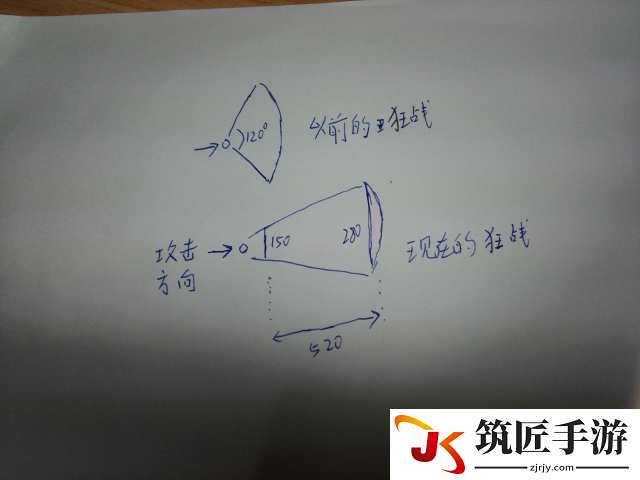 120°
以前的狂战
攻击
方向
150
280
现在的狂战
520
JK
筑匠手游
zjrjy.com